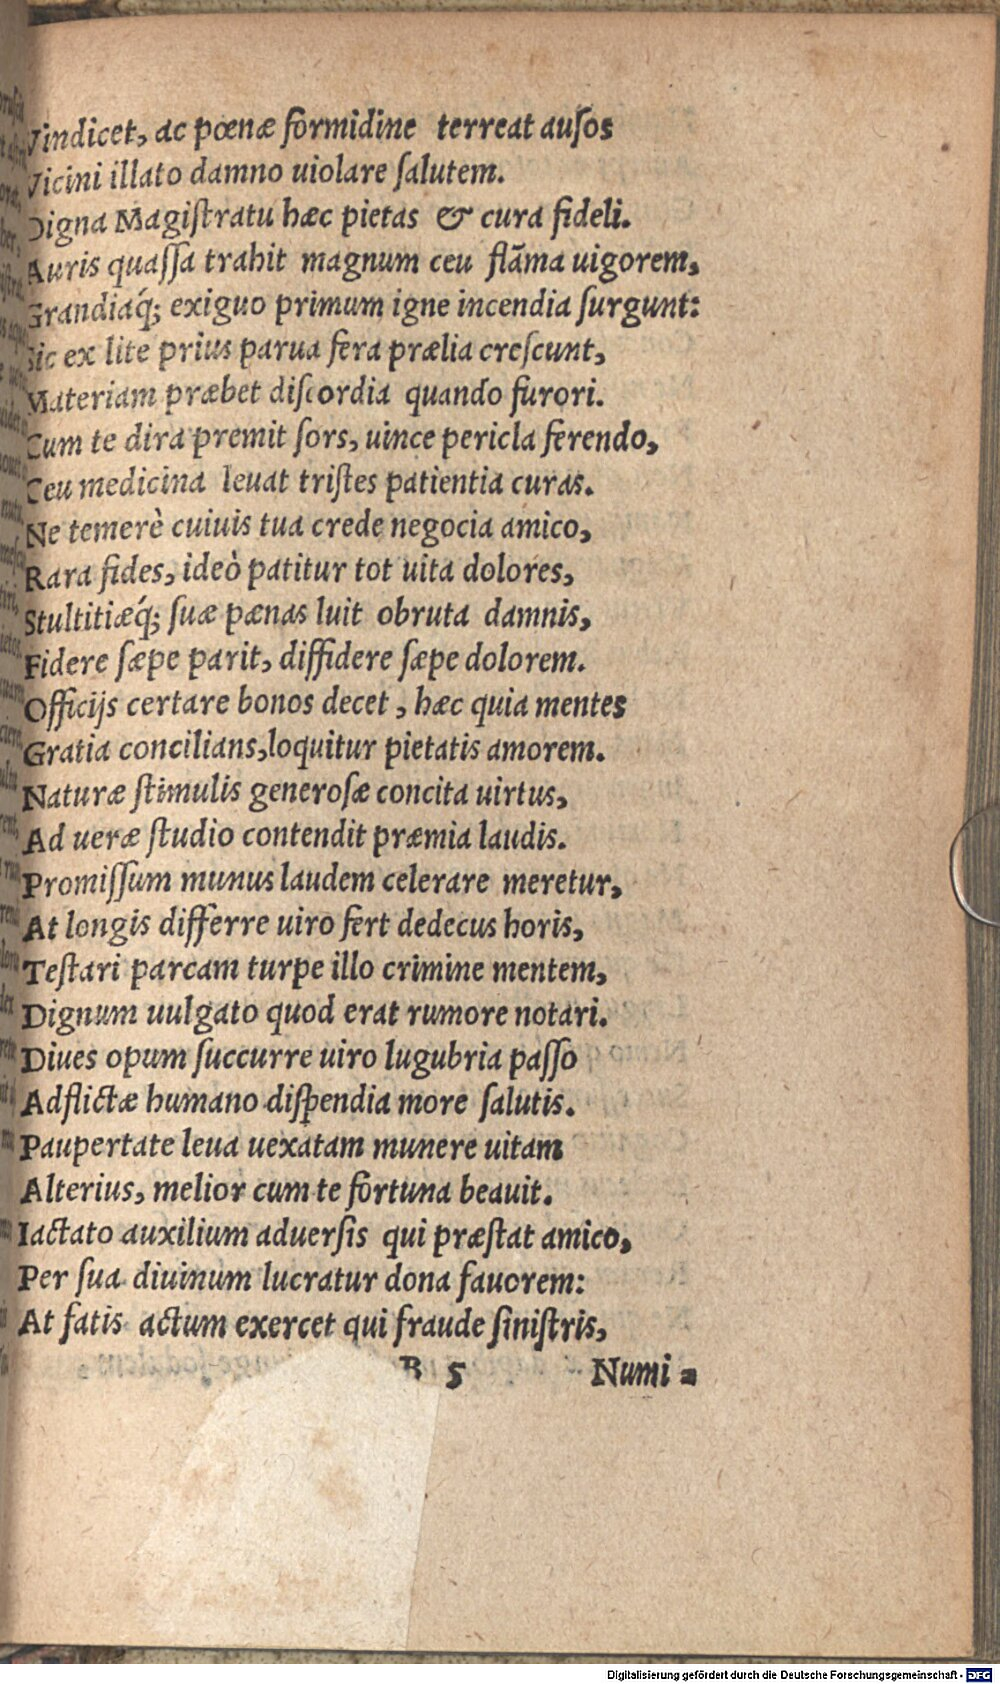 Vindicet, ac pœnæ formidine terreat auſos
Vicini illato damno uiolare ſalutem.
Digna Magiſtratu hæc pietas & cura fideli.
Auris quaſſa trahit magnum ceu flãma uigorem,
Grandiaq́; exiguo primum igne incendia ſurgunt:
Sic ex lite prius parua fera prælia creſcunt,
Materiam præbet diſcordia quando furori.
Cum te dira premit ſors, uince pericla ferendo,
Ceu medicina leuat triſtes patientia curas.
Ne temerè cuiuis tua crede negocia amico,
Rara fides, ideò patitur tot uita dolores,
Stultitiæq́; ſuæ pænas luit obruta damnis,
Fidere ſæpe parit, diffidere ſæpe dolorem.
Officijs certare bonos decet, hæc quia mentes
Gratia concilians, loquitur pietatis amorem.
Naturæ ſtimulis generoſæ concita uirtus,
Ad ueræ ſtudio contendit præmia laudis.
Promiſſum munus laudem celerare meretur,
At longis differre uiro fert dedecus horis,
Teſtari parcam turpe illo crimine mentem,
Dignum uulgato quod erat rumore notari.
Diues opum ſuccurre uiro lugubria paſſo
Adflictæ humano diſpendia more ſalutis.
Paupertate leua uexatam munere uitam
Alterius, melior cum te fortuna beauit.
Iactato auxilium aduerſis qui præſtat amico,
Per ſua diuinum lucratur dona fauorem:
At fatis actum exercet qui fraude ſiniſtris,
B 5 Numi=
Digitalisierung gefördert durch die Deutsche Forschungsgemeinschaft - DFG